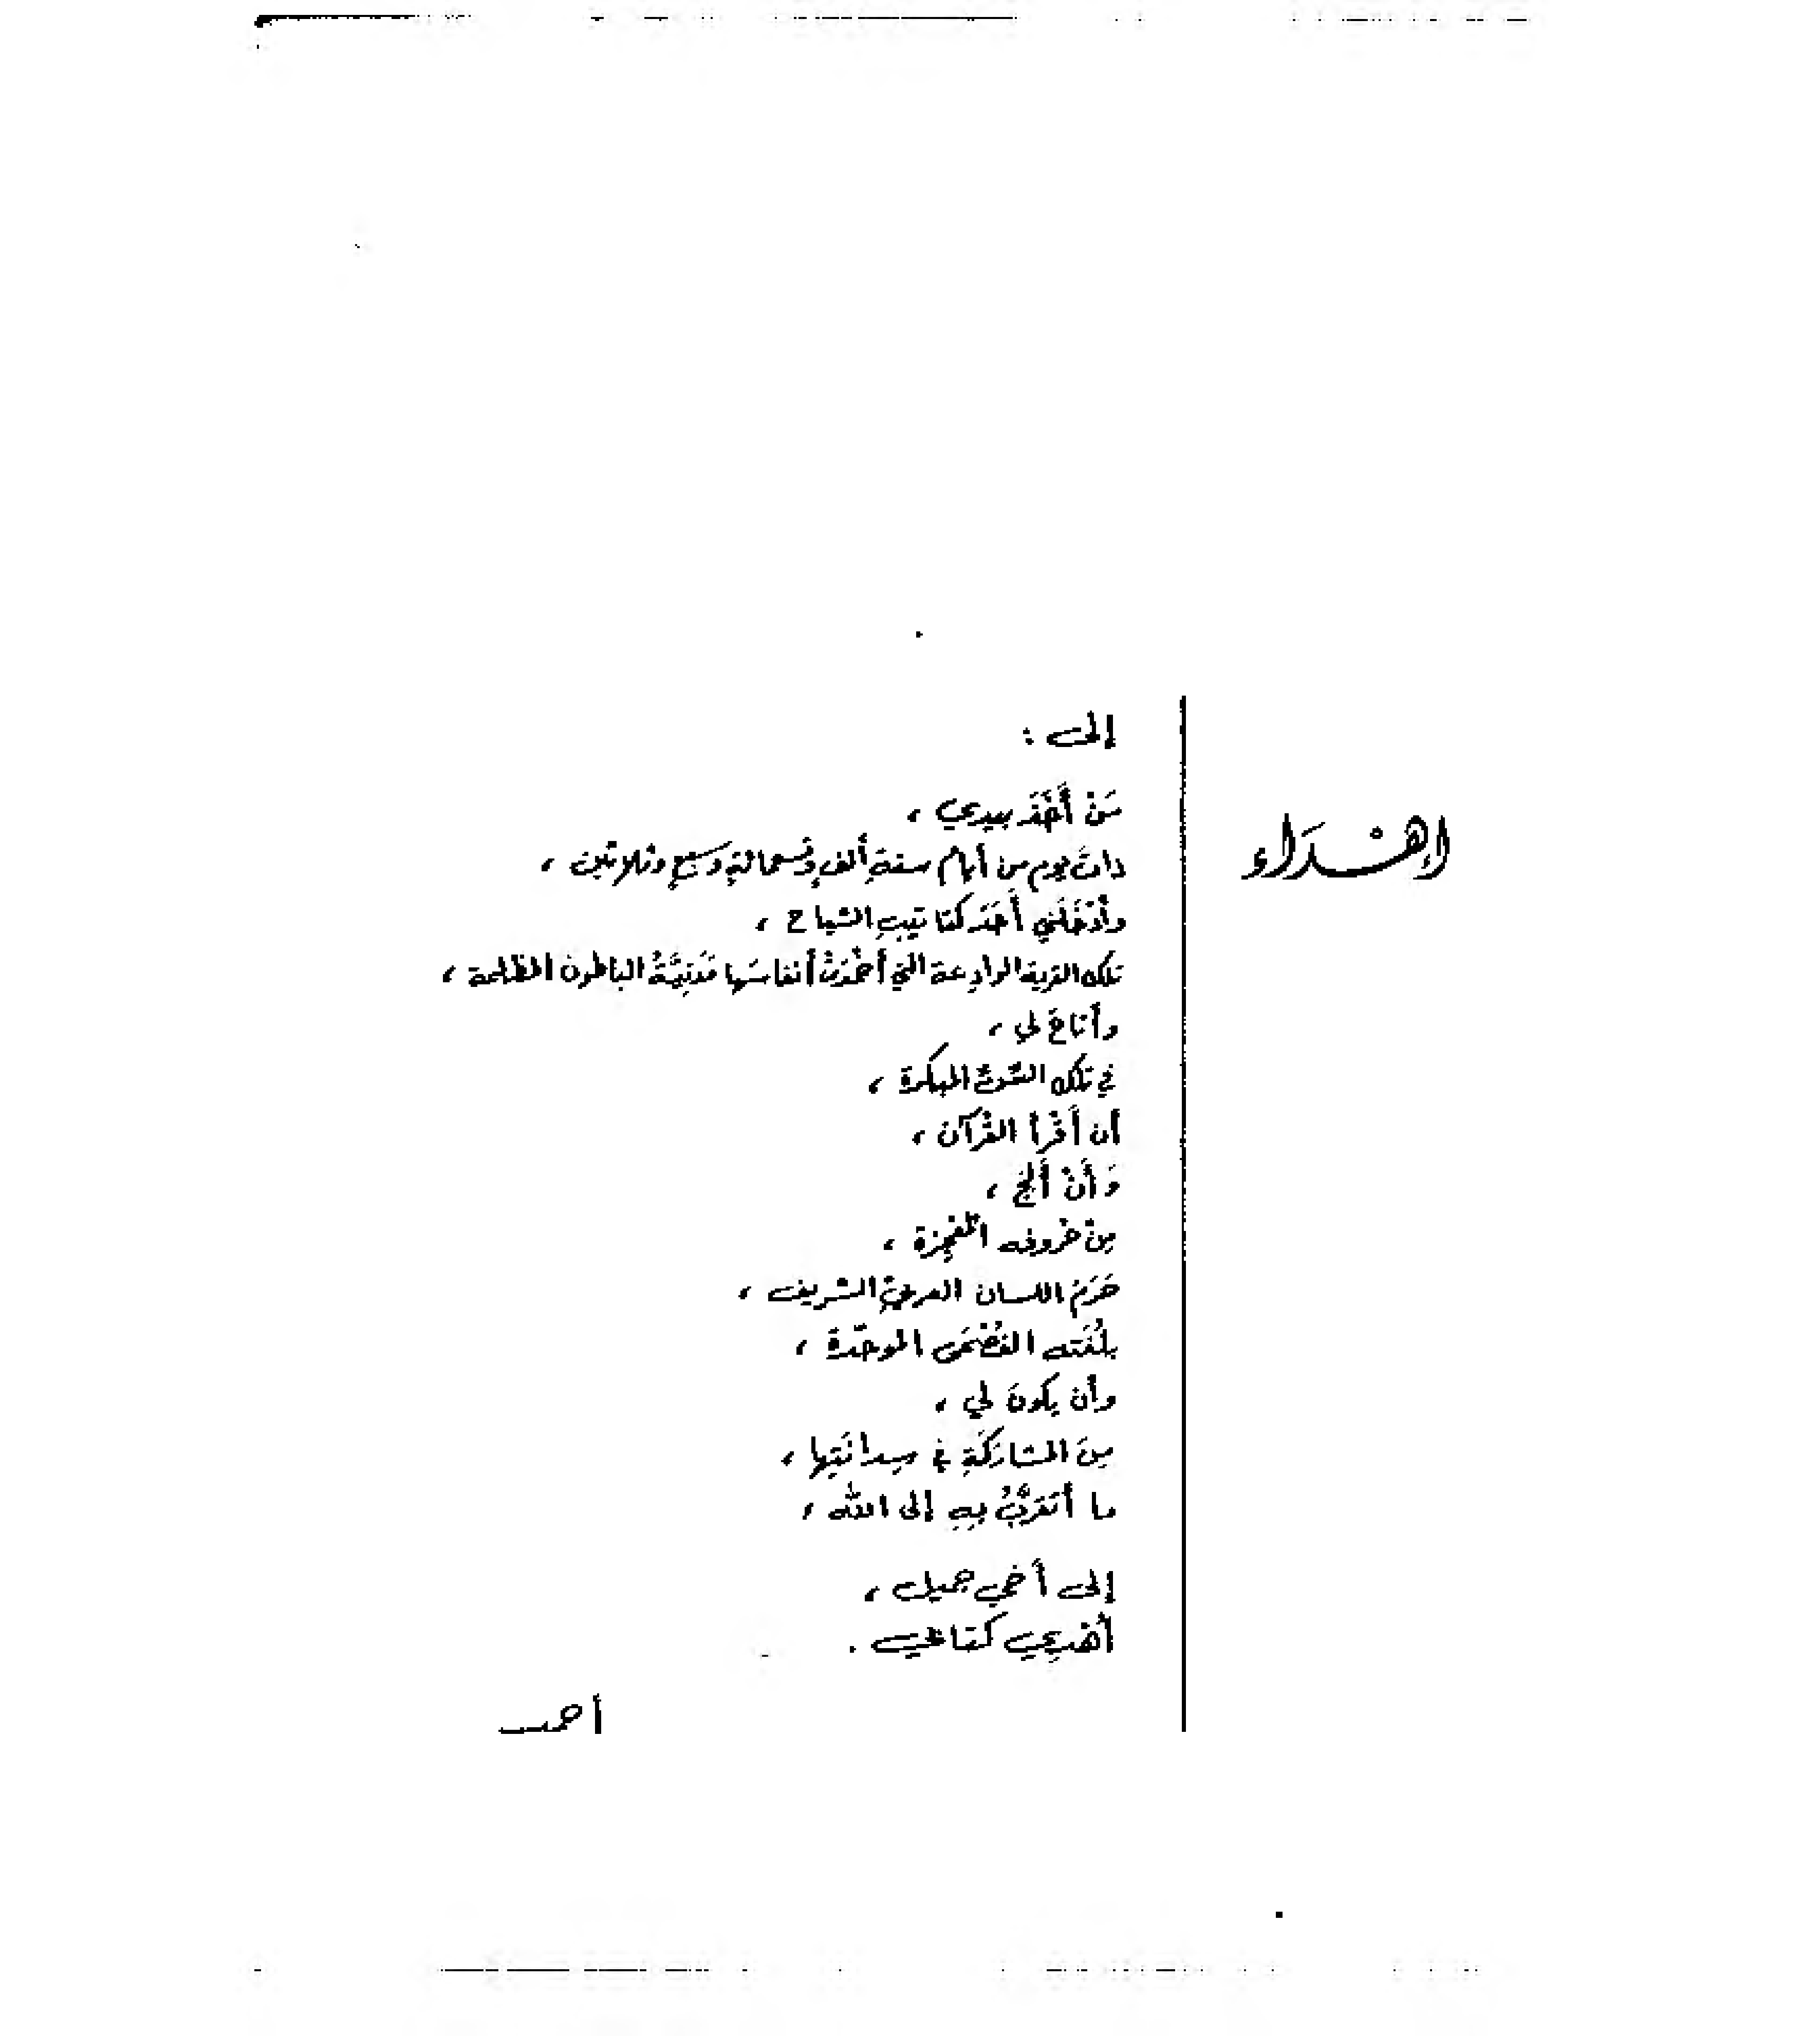 إهْدَاء
إلى :
مَنْ أَخَذَ بيدي ،
ذاتَ يومٍ من أيامِ سنةِ ألفٍ وتسعمائةٍ وسبعٍ وثلاثين ،
وأَدْخَلَني أَحَدَ كتاتيبِ الشياح ،
تلك القرية الوادعة التي أخْمَدَتْ أنفاسَها مَدَنِيَّةُ الباطون الظالمة ،
وأتاحَ لي ،
في تلك السّنّ المبكرة ،
أن أَقْرأ القُرآن ،
وَ أَنْ أَلِجَ ،
مِنْ حُروفه المُعْجِزة ،
حَرَمَ اللسان العربيّ الشريف ،
بلُغَته الفُصْحَى الموحّدة ،
وأن يكونَ لي ،
مِنَ المشارَكَةِ في سِدانَتِها ،
ما أتَقَرَّبُ بِهِ إلى الله ،
إلى أخي جميل ،
أُهْدِي كتابي .
أحمد